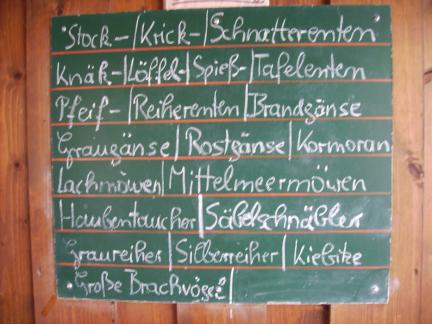 Stock-/Krick-/Schnatterenten
Knäk-/Löffel-/Spieß-/Tafelenten
Pfeif-/Reiherenten/Brandgänse
Graugänse/Rostgänse/Kormoran
Lachmöwen/Mittelmeermöwen
Haubentaucher/Säbelschnäbler
Graureiher/Silberreiher/Kiebitze
Große Brachvögel/